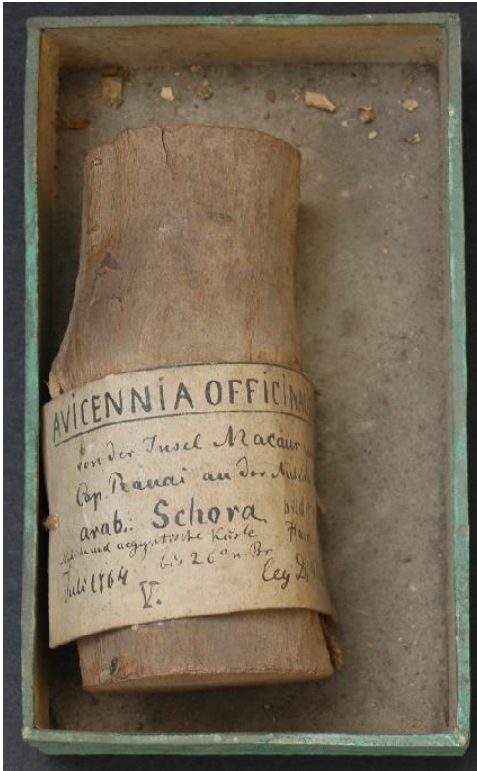 AVICENNIA OFFICINA
von der Insel Macaur
Cap. Ranai an der
arab. Schora
und aegyptische Küste
bis 26° n. Br
Juli 1864
leg D
V.